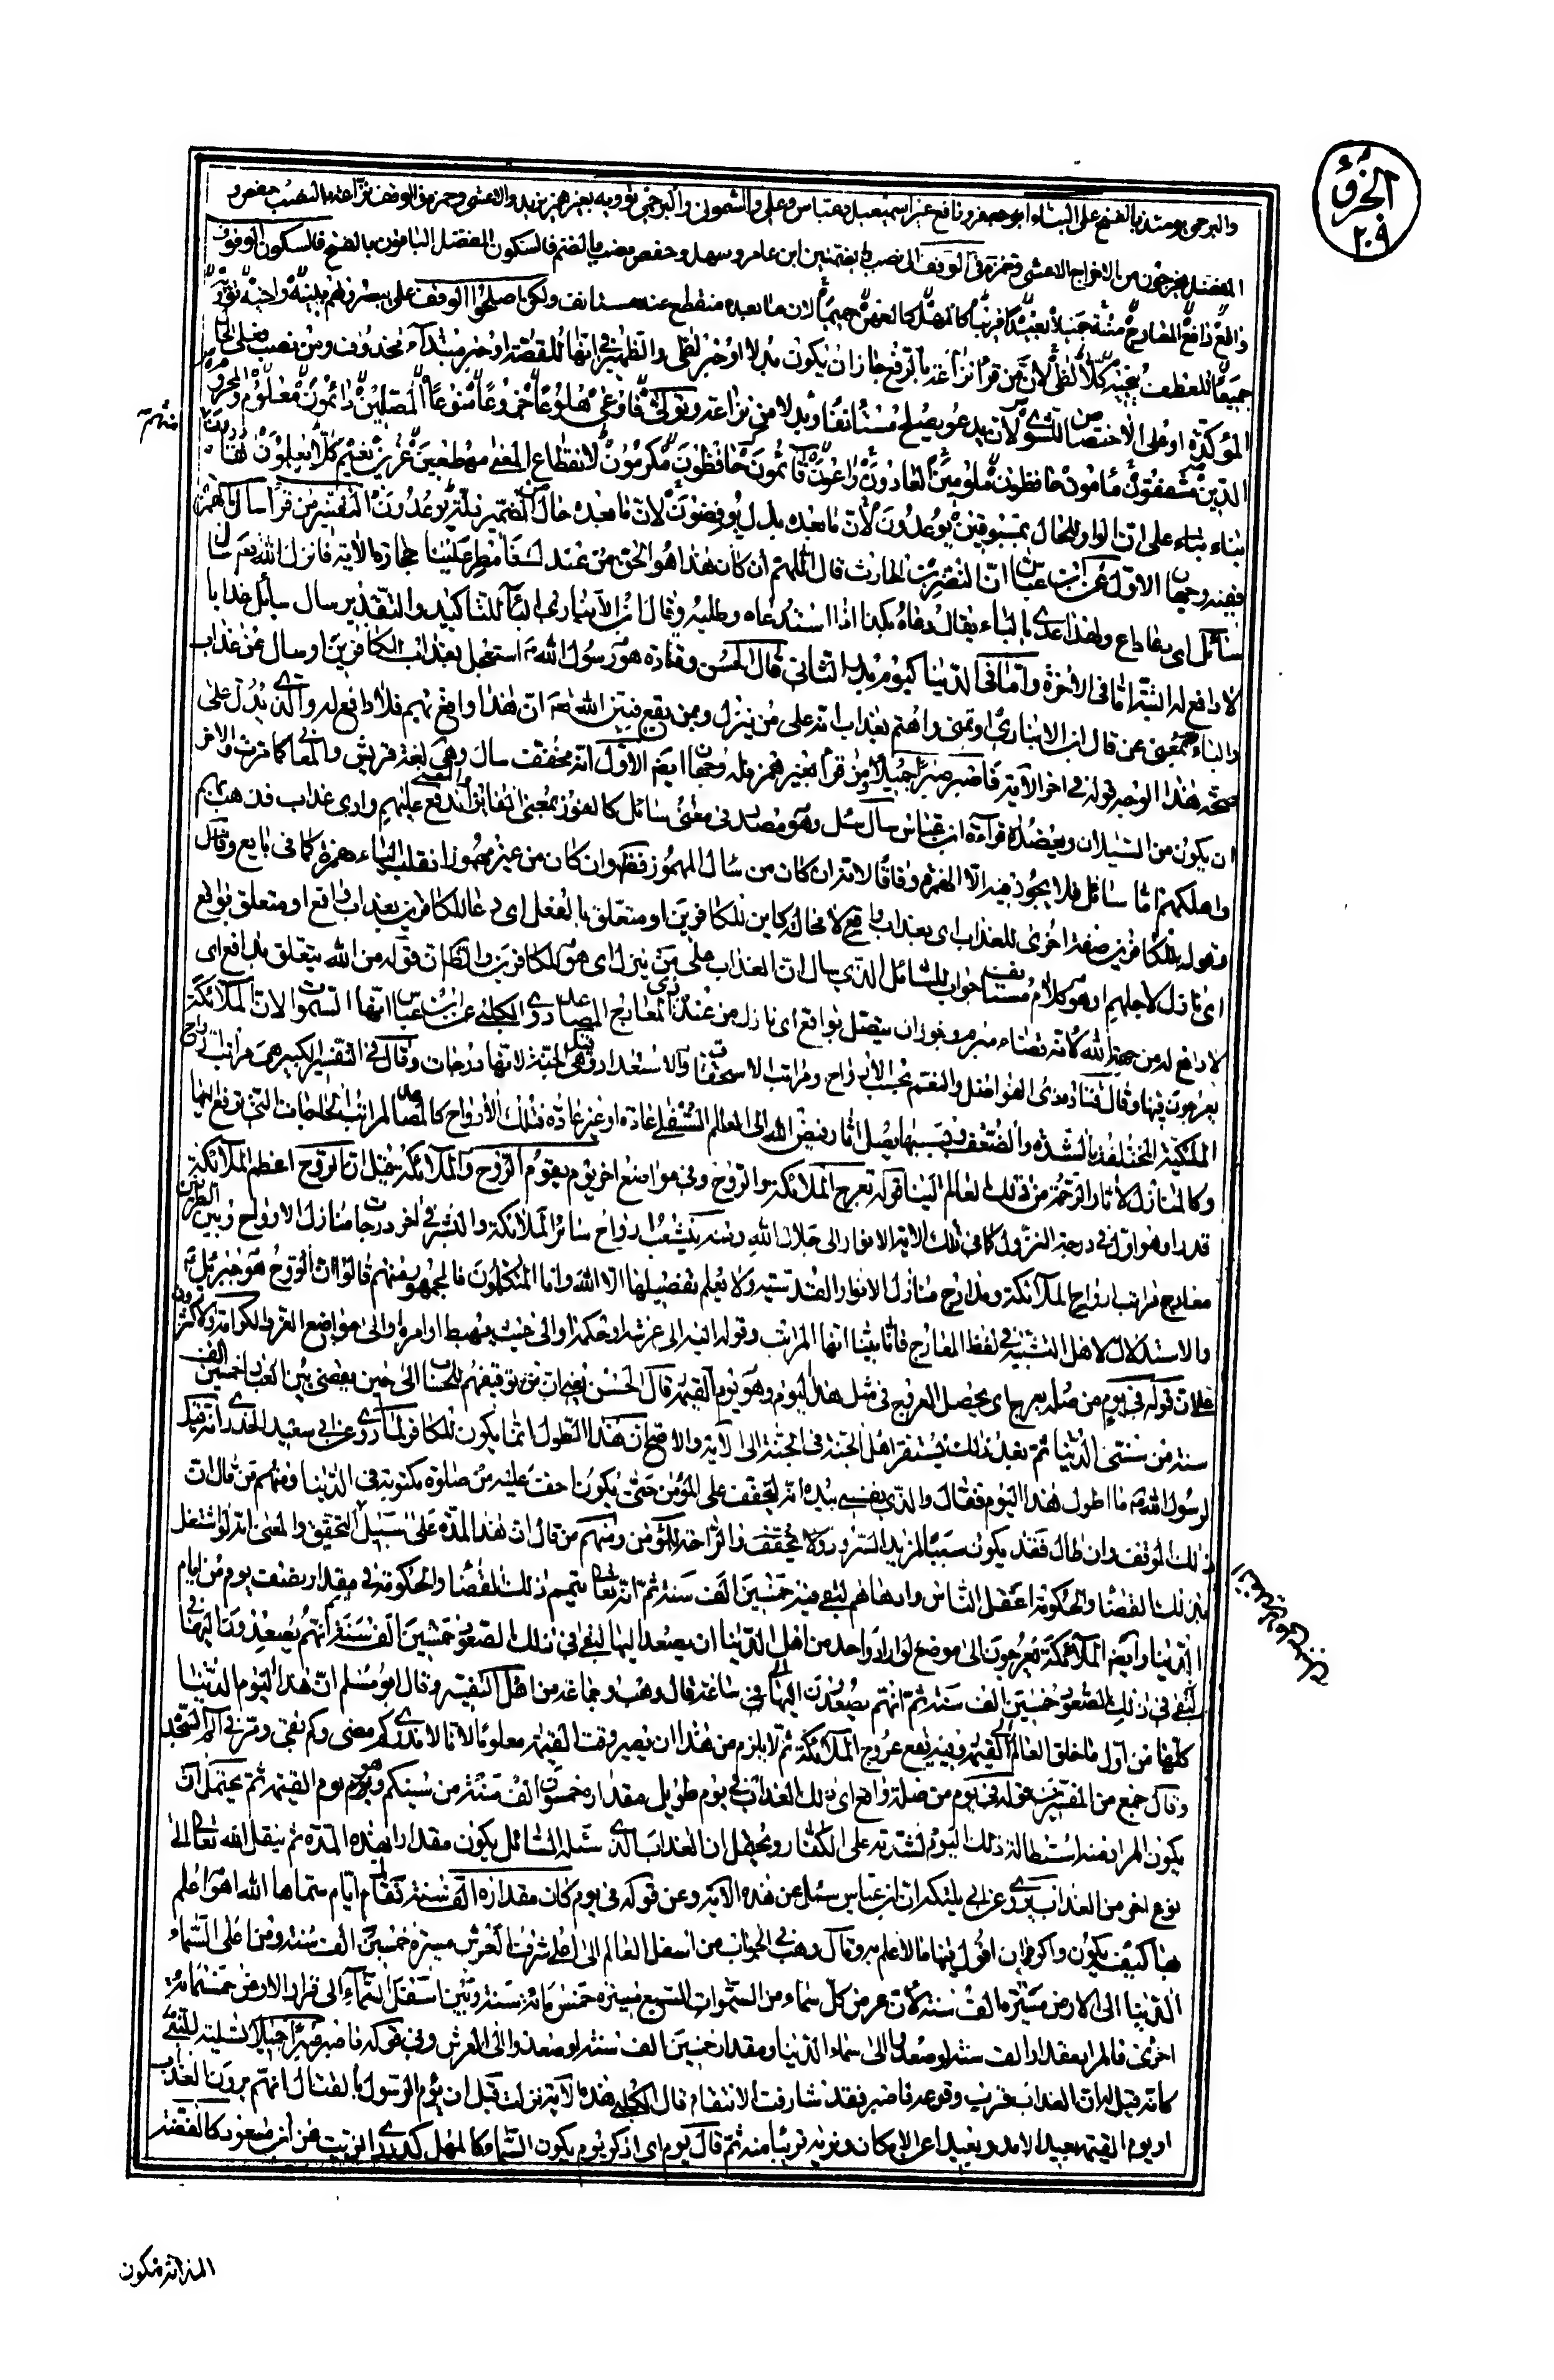 الجزؤ
٢٠٩
والبرجمي يومئذ بالفتح على البناء ابو جعفر ونافع غير اسمعيل وعباس وعلي والشموني والبرجمي تؤويه بغير همز يزيد والاعشى وحمزة في الوقف نزاعة بالنصب حفص و
المفضل يخرجون من الاخراج الاعشى وحمزة في الوقف الى نصب بضمتين ابن عامر وسهل وحفص نصب بالضم فالسكون المفضل الباقون بالفتح فالسكون الوقوف
واقع دافع المعارج سنة جميلا بعيدا قريبا كالمهل كالعهن حميما لان ما بعده منقطع عنه مستانف ولكن اصلحوا الوقف على يبصرونهم ببنيه واخيه تؤويه
جميعا للعطف ينجيه كلا لظى لان من قرأ نزاعة بالرفع جاز ان يكون بدلا او خبر لظى والضمير في انها للقصة او خبر مبتدأ محذوف ومن نصب فعلى الحال
المؤكدة او على الاختصاص للشوى لان تدعو يصلح مستأنفا وبدلا من نزاعة وتولى فاوعى هلوعا جزوعا منوعا المصلين دائمون معلوم والمحروم
الدين مشفقون مأمون حافظون ملومين العادون راعون قائمون حافظون مكرمون لانقطاع المعنى مهطعين عزين نعيم كلا يعلمون لقادرون
بناء على ان الواو للحال بمسبوقين يوعدون لان ما بعده بدل يوفضون لان ما بعده حال الضمير ذلة يوعدون التفسير من قرأ سأل بالهمز
ففيه وجهان الاول عن ابن عباس ان النضر بن الحارث قال اللهم ان كان هذا هو الحق من عندك فامطر علينا حجارة الآية فانزل الله تعم سأل
سائل اي دعا داع ولهذا عدي بالباء يقال دعاه بكذا اذا استدعاه وطلبه وقال ابن الانباري الباء للتاكيد والتقدير سال سائل عذابا
لا دافع له البتة اما في الآخرة واما في الدنيا كيوم بدر الثاني قال الحسن وقتادة هو رسول الله ص استعجل بعذاب الكافرين او سال عن عذاب
والباء بمعنى عن قال ابن الانباري او تمنى واهتم بعذاب انه على من ينزل وبمن يقع فبين الله تعم ان هذا واقع بهم فلا دافع له والذي يدل على
صحة هذا الوجه قوله في اخر الآية فاصبر صبرا جميلا ومن قرأ بغير همز فله وجهان ايضا الاول انه مخفف سأل وهي لغة قريش والمعنى كما مر والآخر
ان يكون من السيلان ويعضده قراءة ابن عباس سال سيل وهو مصدر في معنى سائل كالغور بمعنى الغائر اندفع عليهم وادي عذاب فذهب بهم
واهلكهم اما سائل فلا يجوز فيه الا الهمزة وفاقا لانه ان كان من سأل المهموز فظ وان كان من غير مهموز انقلبت الياء همزة كما في بايع وقائل
وقوله للكافرين صفة اخرى للعذاب اي بعذاب واقع لا محالة كاين للكافرين او متعلق بالفعل اي دعا للكافرين بعذاب واقع او متعلق بواقع
اي نازل لاجلهم او هو كلام مستانف جواب للسائل الذي سال ان العذاب على من ينزل اي هو للكافرين والظ ان قوله من الله يتعلق بدافع اي
لا دافع له من جهة الله لانه قضاء مبرم ويجوز ان يتصل بواقع اي نازل من عنده ذي المعارج المصاعد روى الكلبي عن ابن عباس انها السموات لان الملائكة
يعرجون فيها وقال قتادة ذي الفواضل والنعم بحسب الارواح ومراتب الاستحقاق والاستعداد وقيل هي الجنة لانها درجات وقال في التفسير الكبير هي مراتب ارواح
الملكية المختلفة بالشدة والضعف وبسببها يصل اثار فيض الله الى العالم السفلي عادة او غير عادة فتلك الارواح كالمصاعد لمراتب الحاجات التي ترفع اليها
وكالمنازل لاثار الرحمة من ذلك العالم الينا قوله تعرج الملائكة والروح وفي مواضع اخر يوم يقوم الروح والملائكة سقل ان الروح اعظم الملائكة
قدرا وهو اول في درجة النزول كما في تلك الآية الانوار الى جلال الله ومنه يتشعب ارواح سائر الملائكة والبشر في اخر درجات منازل الارواح وبين الطرفين
معارج مراتب ارواح الملائكة ومدارج منازل الانوار القدسية ولا يعلم تفصيلها الا الله واما المتكلمون فالجمهور منهم قالوا ان الروح هو جبرئيل ع
والاستدلال لاهل التشبيه في لفظ المعارج فانا بينا انها المراتب وقوله اليه الى عرشه او حكمه او الى حيث يهبط اوامره او الى مواضع العز والكرامة والاكثرون
على ان قوله في يوم من صلة يعرج اي يحصل العروج في مثل هذا اليوم وهو يوم القيمة قال الحسن يعني ان موقفهم للحساب الى حين يقضى بين العباد خمسين الف
سنة من سني الدنيا ثم بعد ذلك يستقر اهل الجنة في الجنة الى الآية والاصح ان هذا الطول انما يكون للكافر لما روي عن ابي سعيد الخدري انه قيل
لرسول الله ص ما اطول هذا اليوم فقال والذي نفسي بيده انه ليخفف على المؤمن حتى يكون اخف عليه من صلوة مكتوبة في الدنيا ومنهم من قال ان
ذلك الموقف وان طال فقد يكون سببا لمزيد السرور ولا يخفف والراحة للمؤمن ومنهم من قال ان هذه المدة على سبيل التحقيق والمعنى انه لو اشتغل
بذلك القضاء والحكومة اعقل الناس وادهاهم لبقي فيه خمسين الف سنة ثم انه تعالى يتمم ذلك القضاء والحكومة في مقدار نصف يوم من ايام
الدنيا وايضا الملائكة يعرجون الى موضع لو اراد واحد من اهل الدنيا ان يصعد اليها لبقي في ذلك الصعود خمسين الف سنة ثم انهم يصعدون اليها في
لبقي في ذلك الصعود خمسين الف سنة ثم انهم يصعدون اليها في ساعة قال وهب وجماعة من اهل التفسير وقال ابو مسلم ان هذا اليوم الدنيا
كلها من اول ما خلق العالم الى القيمة وفيه يقع عروج الملائكة ثم لا يلزم من هذا ان يصير وقت القيمة معلوما لانا لا ندري كم مضى وكم بقي ومر في الم السجدة
وقال جمع من المفسرين قوله في يوم من صلة واقع اي ذلك العذاب في يوم طويل مقداره خمسون الف سنة من سنيكم وهو يوم القيمة ثم يحتمل ان
يكون المراد منه استطالة ذلك اليوم لشدته على الكفار ويحتمل ان العذاب الذي سئله السائل يكون مقدار هذه المدة ثم ينقله الله تعالى الى
نوع اخر من العذاب يروى عن ابي مليكة ان ابن عباس سئل عن هذه الآية وعن قوله في يوم كان مقداره الف سنة فقال ايام سماها الله هو اعلم
بها كيف يكون واكره ان اقول فيها ما لا اعلم به وقال وهب في الجواب من اسفل العالم الى اعلى شرفات العرش مسيرة خمسين الف سنة ومن اعلى السماء
الدنيا الى الارض مسيرة الف سنة لان عرض كل سماء من السموات السبع مسيرة خمس مائة سنة وبين اسفل السماء الى قرار الارض خمسمائة
اخرى فالمراد بمقدار الف سنة لو صعدوا الى سماء الدنيا ومقدار خمسين الف سنة لو صعدوا الى العرش وفي قوله فاصبر صبرا جميلا تسلية للنبي
كانه قيل له ان العذاب قرب وقوعه فاصبر فقد شارفت الانتقام قال الكلبي هذه الآية نزلت قبل ان يؤمر الرسول بالقتال انهم يرون العذاب
او يوم القيمة بعيد الامد وبعيدا عن الامكان ونريه قريبا منه ثم قال يوم اي اذكر يوم يكون السماء كالمهل كدردي الزيت عن ابن مسعود كالفضة
المذابة فتكون